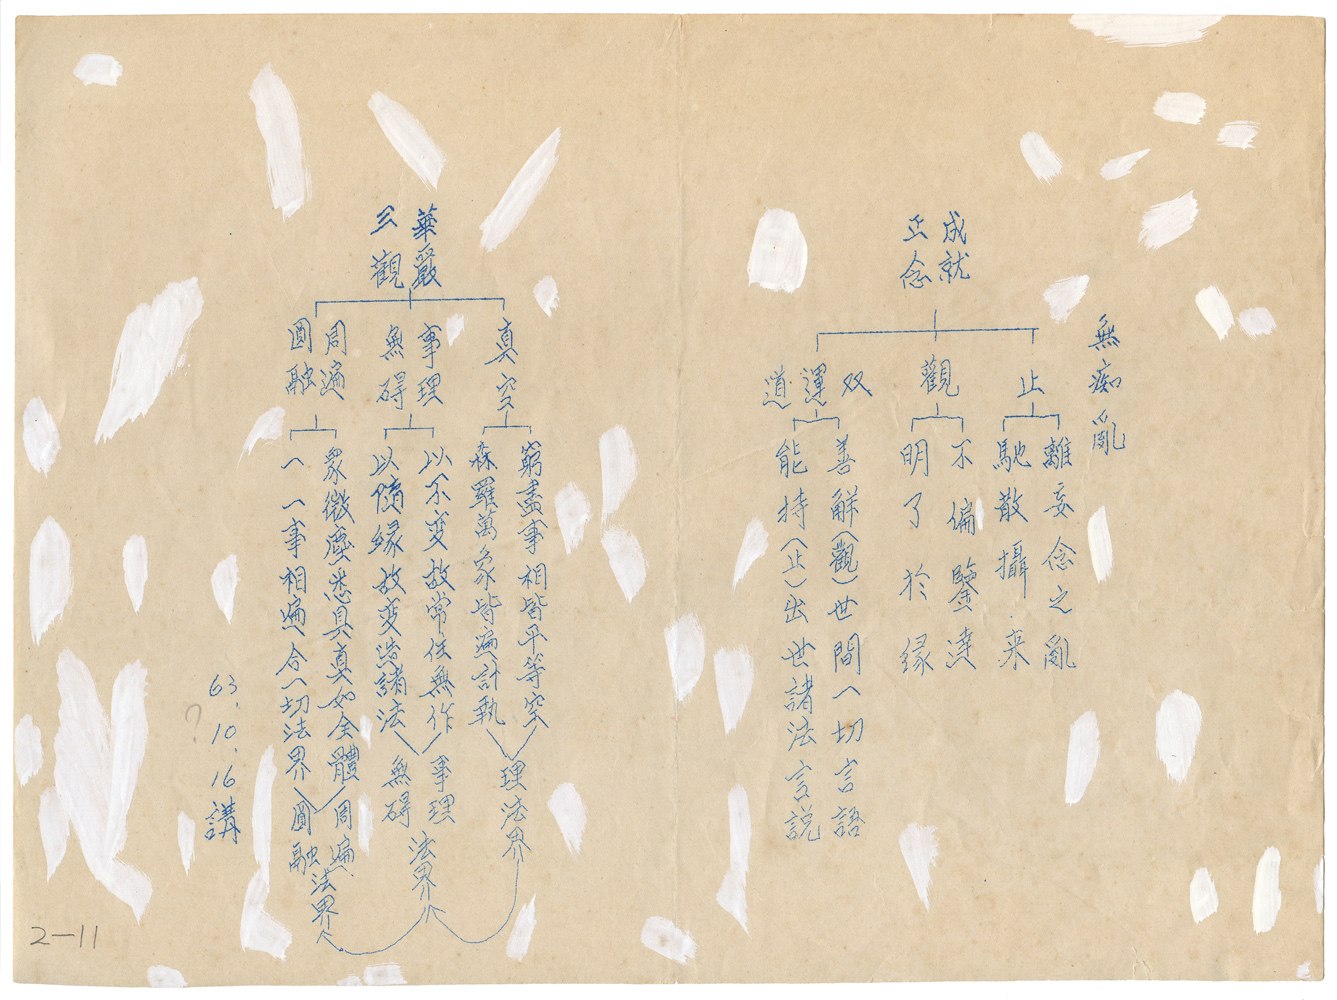 無痴亂
成就
正念
止
離妄念之亂
馳散攝來
觀
不偏鑒達
明了於緣
双運道
善解（觀）世間一切言語
能持（止）出世諸法言説
華嚴
三觀
真空
窮盡事相皆平等空
森羅萬象皆遍計執
理法界
事理
無碍
以不变故常住無作
以隨緣故变造諸法
事理
無碍
法界
周遍
圓融
眾微塵悉具真如全體
一一事相遍合一切法界
周遍
圓融
法界
63.10.16講
?
2-11